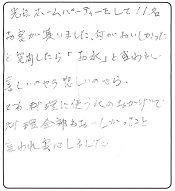 先日ホームパーティーをして11名
お客が来いました。何がおいしかった
と質問したら「お水」と言われ
喜しいのやら悲しいのやら。
でも料理に使う水のおかげで
料理全部おおいしかったと
言われ安心しました